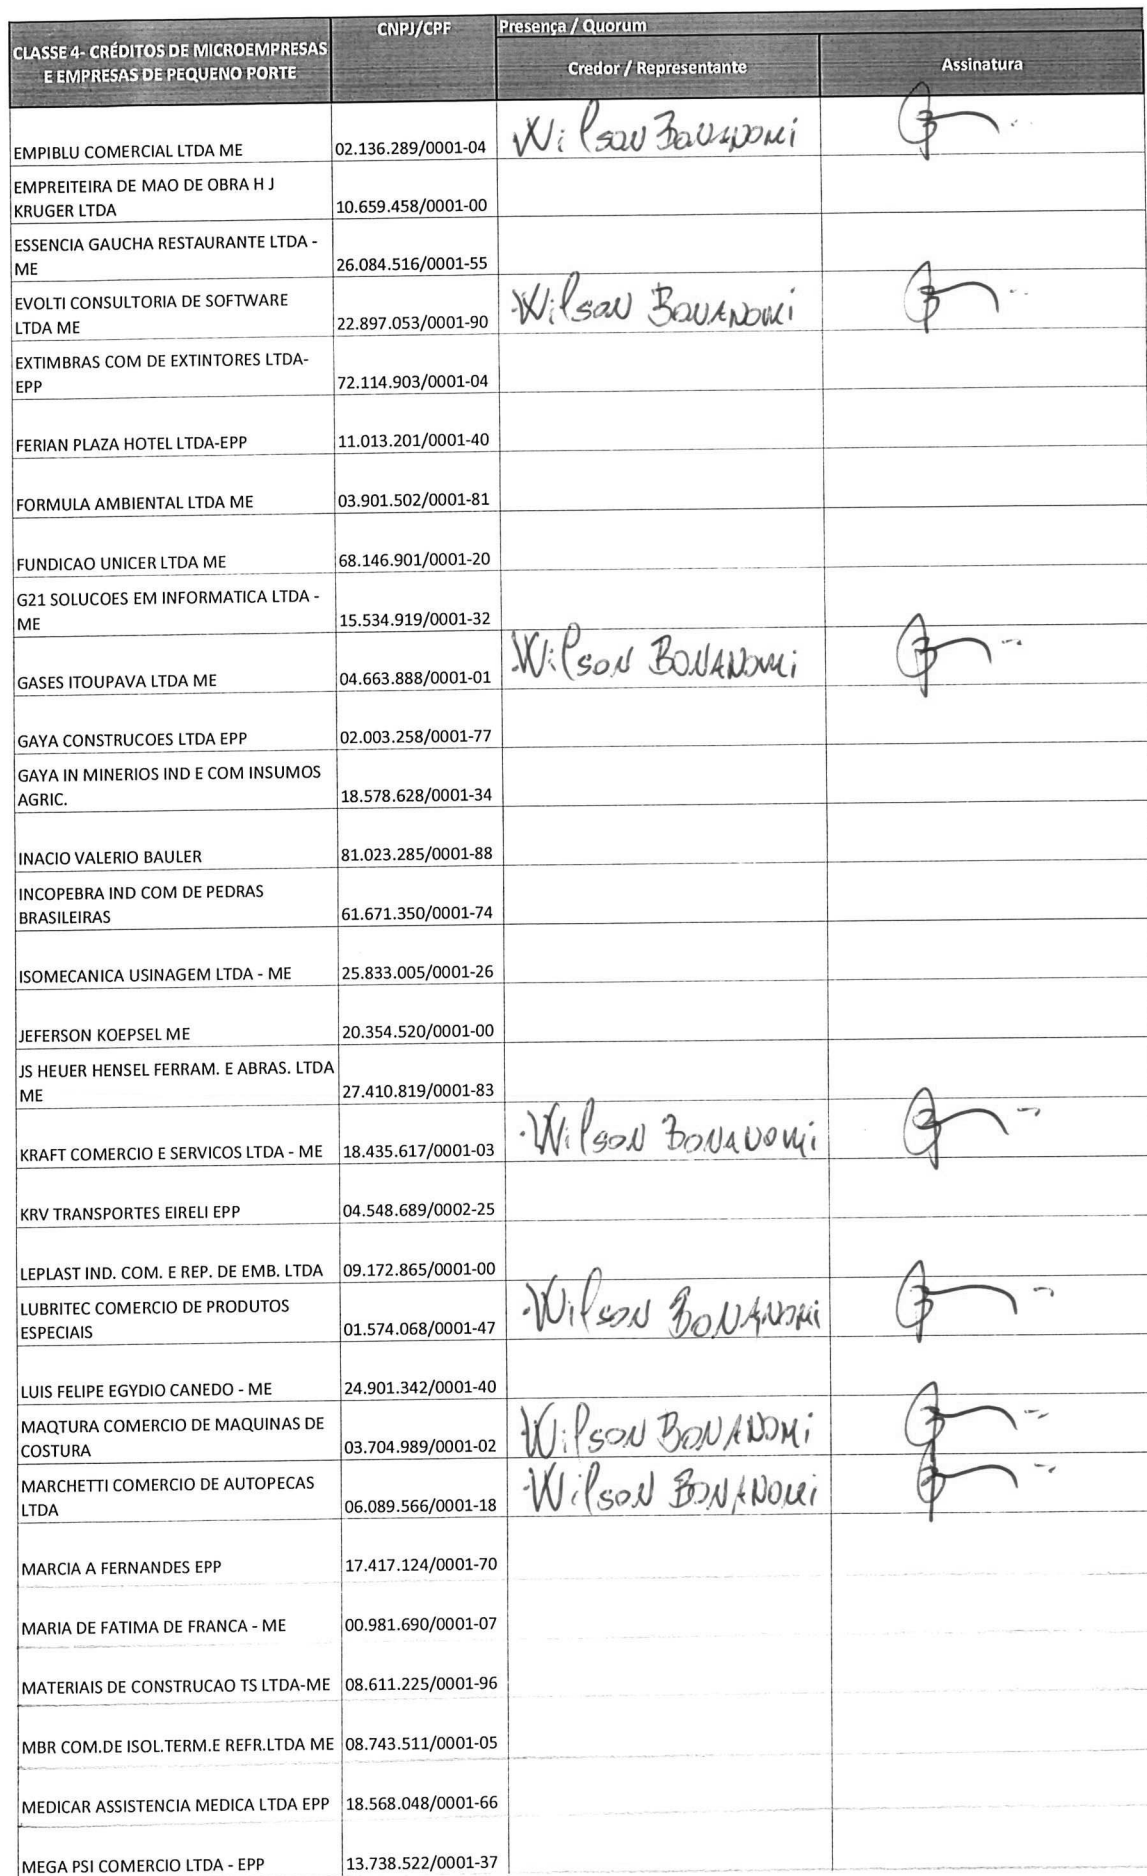 CLASSE 4- CRÉDITOS DE MICROEMPRESAS
E EMPRESAS DE PEQUENO PORTE
CNPJ/CPF
Presença / Quorum
Credor / Representante
Assinatura
EMPIBLU COMERCIAL LTDA ME 02.136.289/0001-04 Wilson Bonanomi
EMPREITEIRA DE MAO DE OBRA H J
KRUGER LTDA 10.659.458/0001-00
ESSENCIA GAUCHA RESTAURANTE LTDA -
ME 26.084.516/0001-55
EVOLTI CONSULTORIA DE SOFTWARE
LTDA ME 22.897.053/0001-90 Wilson Bonanomi
EXTIMBRAS COM DE EXTINTORES LTDA-
EPP 72.114.903/0001-04
FERIAN PLAZA HOTEL LTDA-EPP 11.013.201/0001-40
FORMULA AMBIENTAL LTDA ME 03.901.502/0001-81
FUNDICAO UNICER LTDA ME 68.146.901/0001-20
G21 SOLUCOES EM INFORMATICA LTDA -
ME 15.534.919/0001-32
GASES ITOUPAVA LTDA ME 04.663.888/0001-01 Wilson Bonanomi
GAYA CONSTRUCOES LTDA EPP 02.003.258/0001-77
GAYA IN MINERIOS IND E COM INSUMOS
AGRIC. 18.578.628/0001-34
INACIO VALERIO BAULER 81.023.285/0001-88
INCOPEBRA IND COM DE PEDRAS
BRASILEIRAS 61.671.350/0001-74
ISOMECANICA USINAGEM LTDA - ME 25.833.005/0001-26
JEFERSON KOEPSEL ME 20.354.520/0001-00
JS HEUER HENSEL FERRAM. E ABRAS. LTDA
ME 27.410.819/0001-83
KRAFT COMERCIO E SERVICOS LTDA - ME 18.435.617/0001-03 Wilson Bonanomi
KRV TRANSPORTES EIRELI EPP 04.548.689/0002-25
LEPLAST IND. COM. E REP. DE EMB. LTDA 09.172.865/0001-00
LUBRITEC COMERCIO DE PRODUTOS
ESPECIAIS 01.574.068/0001-47 Wilson Bonanomi
LUIS FELIPE EGYDIO CANEDO - ME 24.901.342/0001-40
MAQTURA COMERCIO DE MAQUINAS DE
COSTURA 03.704.989/0001-02 Wilson Bonanomi
MARCHETTI COMERCIO DE AUTOPECAS
LTDA 06.089.566/0001-18 Wilson Bonanomi
MARCIA A FERNANDES EPP 17.417.124/0001-70
MARIA DE FATIMA DE FRANCA - ME 00.981.690/0001-07
MATERIAIS DE CONSTRUCAO TS LTDA-ME 08.611.225/0001-96
MBR COM.DE ISOL.TERM.E REFR.LTDA ME 08.743.511/0001-05
MEDICAR ASSISTENCIA MEDICA LTDA EPP 18.568.048/0001-66
MEGA PSI COMERCIO LTDA - EPP 13.738.522/0001-37